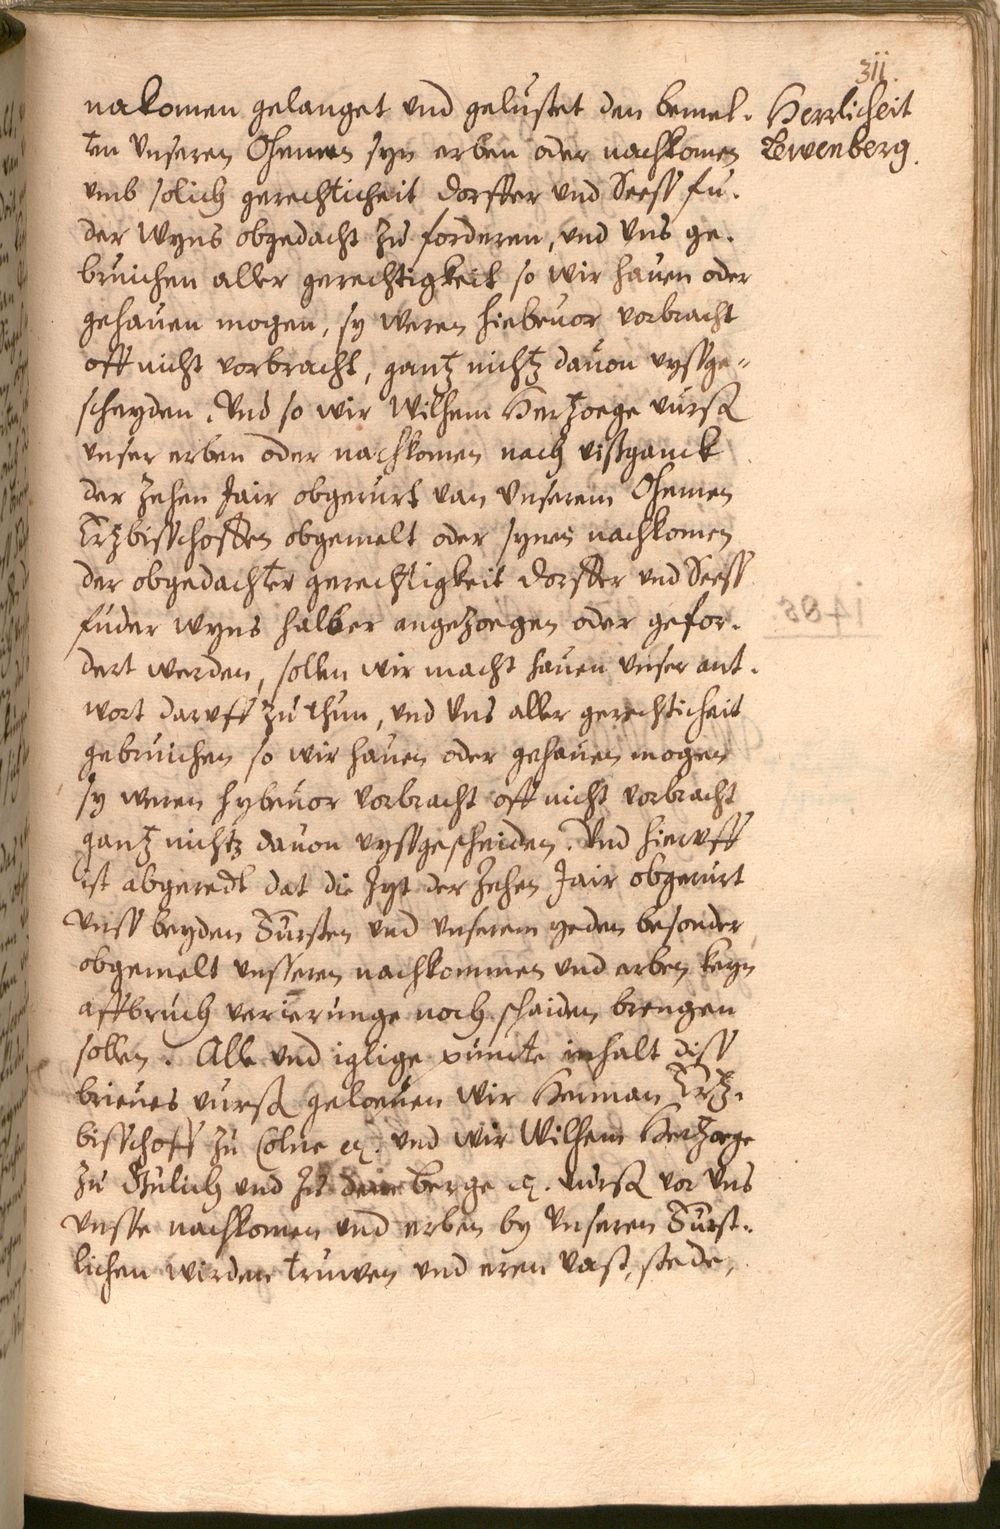 311.
Herrlicheit
Lewenberg.
nakomen gelanget und gelustet den bemel-
ten unseren Ohemen syn erben oder nachkomen
umb solich gerechticheit dorffer und Seess fu-
der wyns obgedacht zu forderen, und uns ge-
bruichen aller gerechtigkeit so wir hauen oder
gehauen mogen, sy weren hiebeuor vorbracht
off nicht vorbracht, gantz nichtz dauon uyssge-
scheyden. Und so wir Wilhem Hertzoege vurß
unser erben oder nachkomen nach ußganck
der zehen Jair obgerurt van unserem Ohemen
Ertzbisschoffen obgemelt oder synen nachkomen
der obgedachter gerechtigkeit dorffer und Seess
fuder wyns halber angezoegen oder gefor-
dert werden, sollen wir macht hauen unser ant-
wort daruff zu thun, und uns aller gerechticheit
gebruichen so wir hauen oder gehauen mogen
sy weren hybeuor vorbracht off nicht vorbracht
gantz nichtz dauon uyssgescheiden. Und hieruff
ist abgeredt dat die zyt der zehen Jair obgerurt
unss beyden Fursten und unserem yeden besonder
obgemelt unsseren nachkommen und erben keyn
affbruch verierunge noch schaiden brengen
sollen. Alle und iglige puncte inhalt diss
brieues vurß geloeuen wir Herman Ertz-
bisschoff zu Colne etc. und wir Wilhem Hertzoge
zu Gulich und zu dem berge etc. vurß vor uns
unsse nachkomen und erben by unseren Furst-
lichen wirden truwen und eren vast, stede,